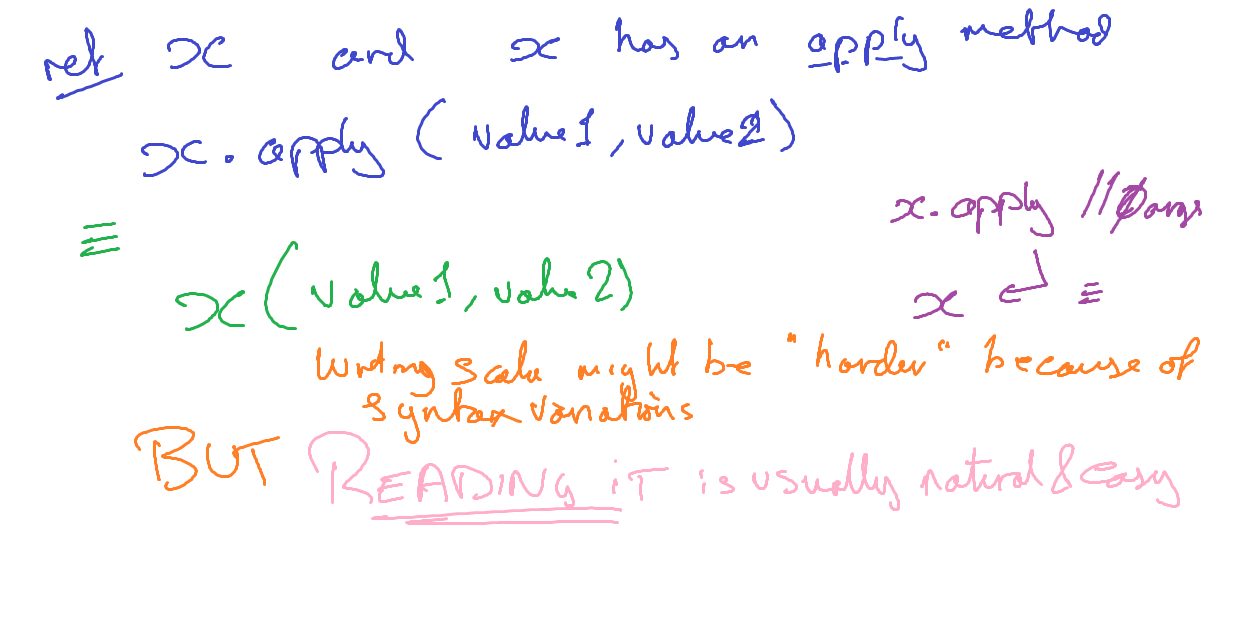 ref x and x has an apply method
x.apply (value1, value2)
≡
x(value1, value2)
x.apply // 0 args
x ↵ ≡
Writing scala might be "harder" because of
syntax variations
BUT READING iT is usually natural & easy